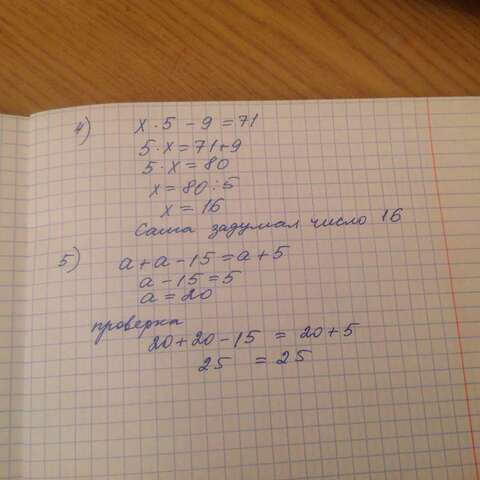 4) x · 5 - 9 = 71
5 · x = 71+9
5 · x = 80
x = 80 : 5
x = 16
Саша задумал число 16
5) a + a - 15 = a + 5
a - 15 = 5
a = 20
проверка
20 + 20 - 15 = 20 + 5
25 = 25